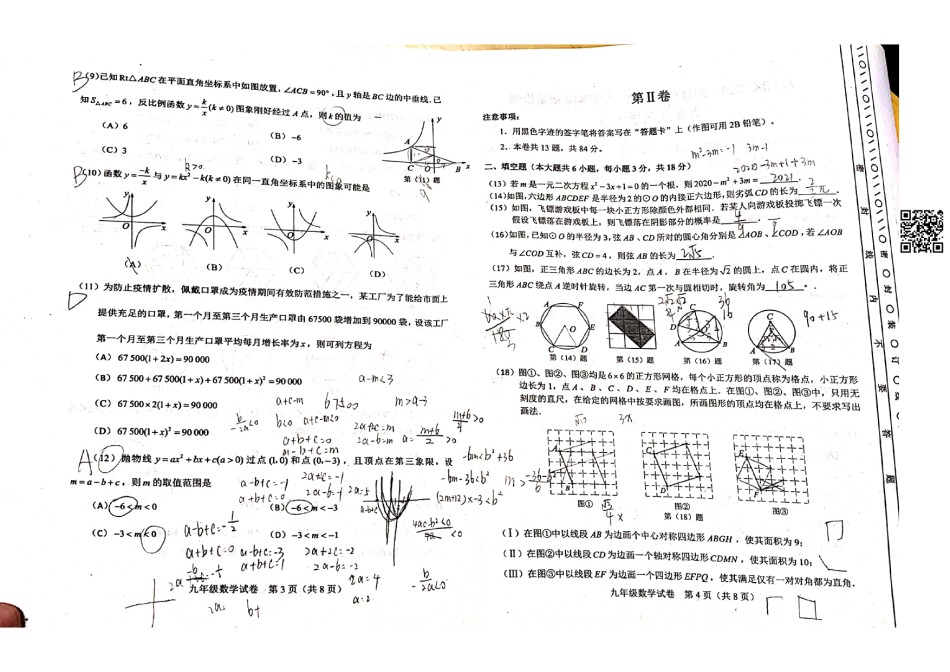 B (9)已知 Rt△ABC 在平面直角坐标系中如图放置,∠ACB=90°,且 y 轴是 BC 边的中垂线.已
知 S△ABC=6,反比例函数 y=k/x(k≠0)图象刚好经过 A 点,则 k 的值为
(A)6
(B)-6
(C)3
(D)-3
第(11)题
9
(10)函数 y=-k/x 与 y=kx²-k(k≠0)在同一直角坐标系中的图象可能是
k>0
(A)
(B)
(C)
(D)
D (11)为防止疫情扩散,佩戴口罩成为疫情期间有效防范措施之一,某工厂为了能给市面上
提供充足的口罩,第一个月至第三个月生产口罩由 67500 袋增加到 90000 袋,设该工厂
第一个月至第三个月生产口罩平均每月增长率为 x,则可列方程为
(A)67 500(1+2x)=90 000
(B)67 500+67 500(1+x)+67 500(1+x)²=90 000
(C)67 500×2(1+x)=90 000
(D)67 500(1+x)²=90 000
a-m<3
a+c=m
a+b+c=0
a-b+c=m
A (12)抛物线 y=ax²+bx+c(a>0)过点(1,0)和点(0,-3),且顶点在第三象限,设
m=a-b+c,则 m 的取值范围是
(A)-6<m<0
(B)-6<m<-3
(C)-3<m<0
(D)-3<m<-1
a-b+c=-1
a+b+c=0
a-b+c=-1/2
a+b+c=0
a-b+c=-3
2a+2c=-2
2a-b=-2
2a=4
a=2
九年级数学试卷 第 3 页(共 8 页)
第Ⅱ卷
注意事项:
1.用黑色字迹的签字笔将答案写在“答题卡”上(作图可用 2B 铅笔).
2.本卷共 13 题,共 84 分.
m²-3m=-1 3m-1
2020-3m+1+3m
二、填空题(本大题共 6 小题,每小题 3 分,共 18 分)
(13)若 m 是一元二次方程 x²-3x+1=0 的一个根,则 2020-m²+3m= 2021 .
(14)如图,六边形 ABCDEF 是半径为 2 的⊙O 的内接正六边形,则劣弧 CD 的长为 2/3π .
(15)如图,飞镖游戏板中每一块小正方形除颜色外都相同.若某人向游戏板投掷飞镖一次
假设飞镖落在游戏板上,则飞镖落在阴影部分的概率是 4/9 .
(16)如图,已知⊙O 的半径为 3,弦 AB、CD 所对的圆心角分别是∠AOB、∠COD,若∠AOB
与∠COD 互补,弦 CD=4,则弦 AB 的长为 2√5 .
(17)如图,正三角形 ABC 的边长为 2,点 A,B 在半径为 √2 的圆上,点 C 在圆内,将正
三角形 ABC 绕点 A 逆时针旋转,当边 AC 第一次与圆相切时,旋转角为 105 °.
36
16
90+15
第(14)题
第(15)题
第(16)题
第(17)题
(18)图①、图②、图③均是 6×6 的正方形网格,每个小正方形的顶点称为格点,小正方形
边长为 1,点 A、B、C、D、E、F 均在格点上.在图①、图②、图③中,只用无
刻度的直尺,在给定的网格中按要求画图,所画图形的顶点均在格点上,不要求写出
画法.
图①
图②
图③
第(18)题
(Ⅰ)在图①中以线段 AB 为边画个中心对称四边形 ABGH,使其面积为 9;
(Ⅱ)在图②中以线段 CD 为边画一个轴对称四边形 CDMN,使其面积为 10;
(Ⅲ)在图③中以线段 EF 为边画一个四边形 EFPQ,使其满足仅有一对对角都为直角.
九年级数学试卷 第 4 页(共 8 页)
密 封 线 内 不 要 答 题